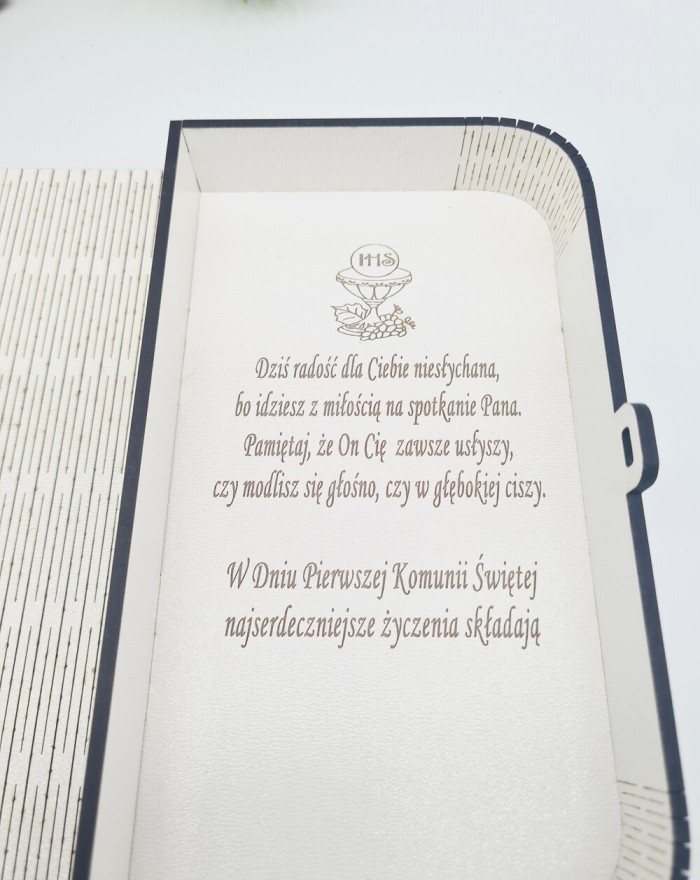 IHS
Dziś radość dla Ciebie niesłychana,
bo idziesz z miłością na spotkanie Pana.
Pamiętaj, że On Cię zawsze usłyszy,
czy modlisz się głośno, czy w głębokiej ciszy.
W Dniu Pierwszej Komunii Świętej
najserdeczniejsze życzenia składają